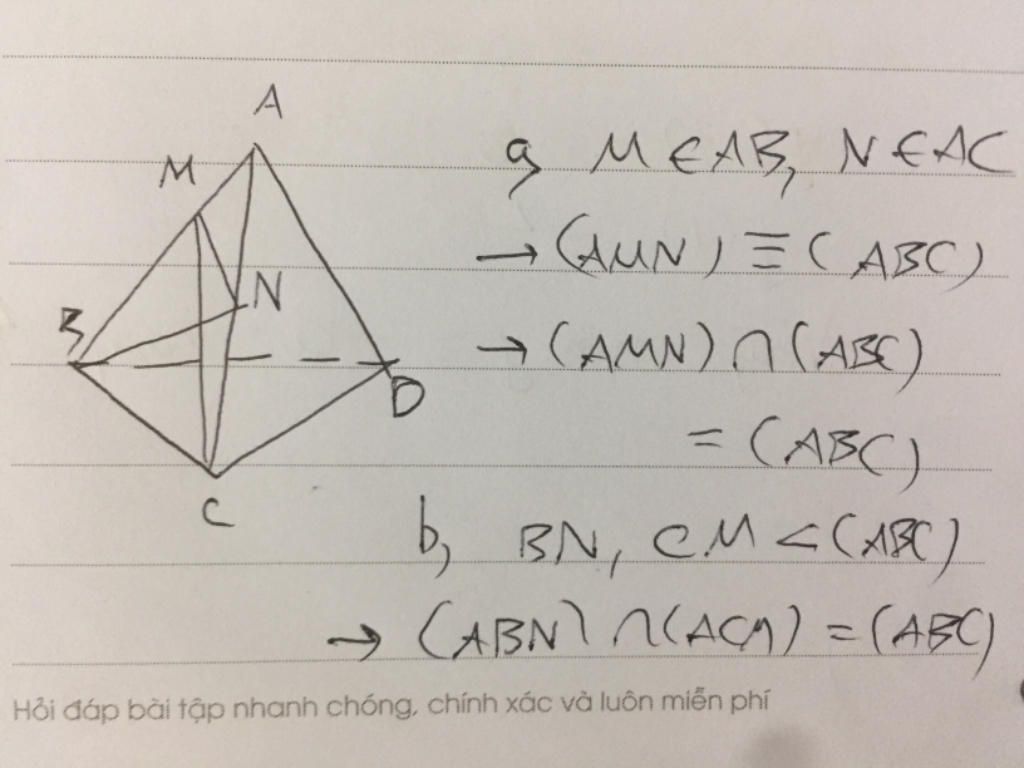 A
M
N
B
D
C
a, M ∈ AB, N ∈ AC
→ (AMN) ≡ (ABC)
→ (AMN) ∩ (ABC)
= (ABC)
b, BN, CM < (ABC)
→ (ABN) ∩ (ACM) = (ABC)
Hỏi đáp bài tập nhanh chóng, chính xác và luôn miễn phí